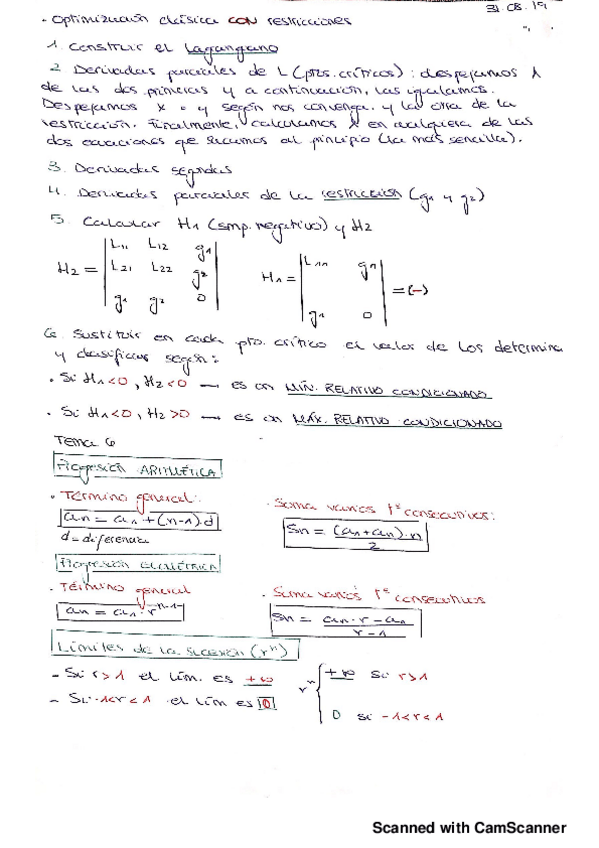 31.08.19
• Optimización clásica CON restricciones
1. Construir el Lagangano
2. Derivadas parciales de L (ptos. críticos): despejamos λ
de las dos primeras y a continuación, las igualamos.
Despejamos x o y según nos convenga, y la otra de la
restricción. Finalmente, calculamos λ en cualquiera de las
dos ecuaciones que sacamos al principio (la más sencilla).
3. Derivadas segundas
4. Derivadas parciales de la restricción (g1 y g2)
5. Calcular H1 (smp. negativo) y H2
H2 = | L11 L12 g1 |
| L21 L22 g2 |
| g1 g2 0 |
H1 = | L11 g1 |
| g1 0 | = (-)
6. Sustituir en cada pto. crítico el valor de los determina
y clasificar según:
• Si H1<0, H2<0 → es un MÍN. RELATIVO CONDICIONADO
• Si H1<0, H2>0 → es un MÁX. RELATIVO CONDICIONADO
Tema 6
Progresión ARITMÉTICA
• Término general:
an = a1 + (n-1)·d
d = diferencia
• Suma varios tº consecutivos:
Sn = (a1+an)·n / 2
Progresión GEOMÉTRICA
• Término general
an = a1 · r^n-1
• Suma varios tº consecutivos
Sn = an·r - a1 / r-1
Límites de la sucesión (r^n)
- Si r>1 el lím. es +∞
- Si -1<r<1 el lím es 0
r^n { +∞ si r>1
0 si -1<r<1
Scanned with CamScanner